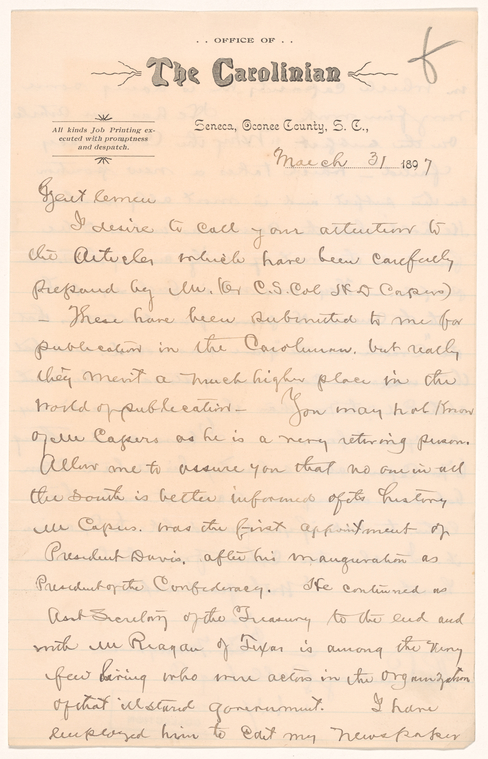 . . OFFICE OF . .
The Carolinian
All kinds Job Printing ex-
ecuted with promptness
and despatch.
Seneca, Oconee County, S. C.,
March 31 1897
Gentlemen
I desire to call your attention to
the Articles which have been carefully
prepared by Mr. (or C.S. Col H D Capers)
— These have been submitted to me for
publication in the Carolinian. but really
they merit a much higher place in the
world of publication — You may not know
of Mr Capers as he is a very retiring person.
Allow me to assure you that no one in all
the South is better informed of its history
Mr Capers. was the first appointment of
President Davis. after his inauguration as
President of the Confederacy. He continued as
Asst Secretary of the Treasury to the end and
with Mr Reagan of Texas is among the very
few living who were actors in the organization
of that ill stard government. I have
employed him to Edit my Newspaper